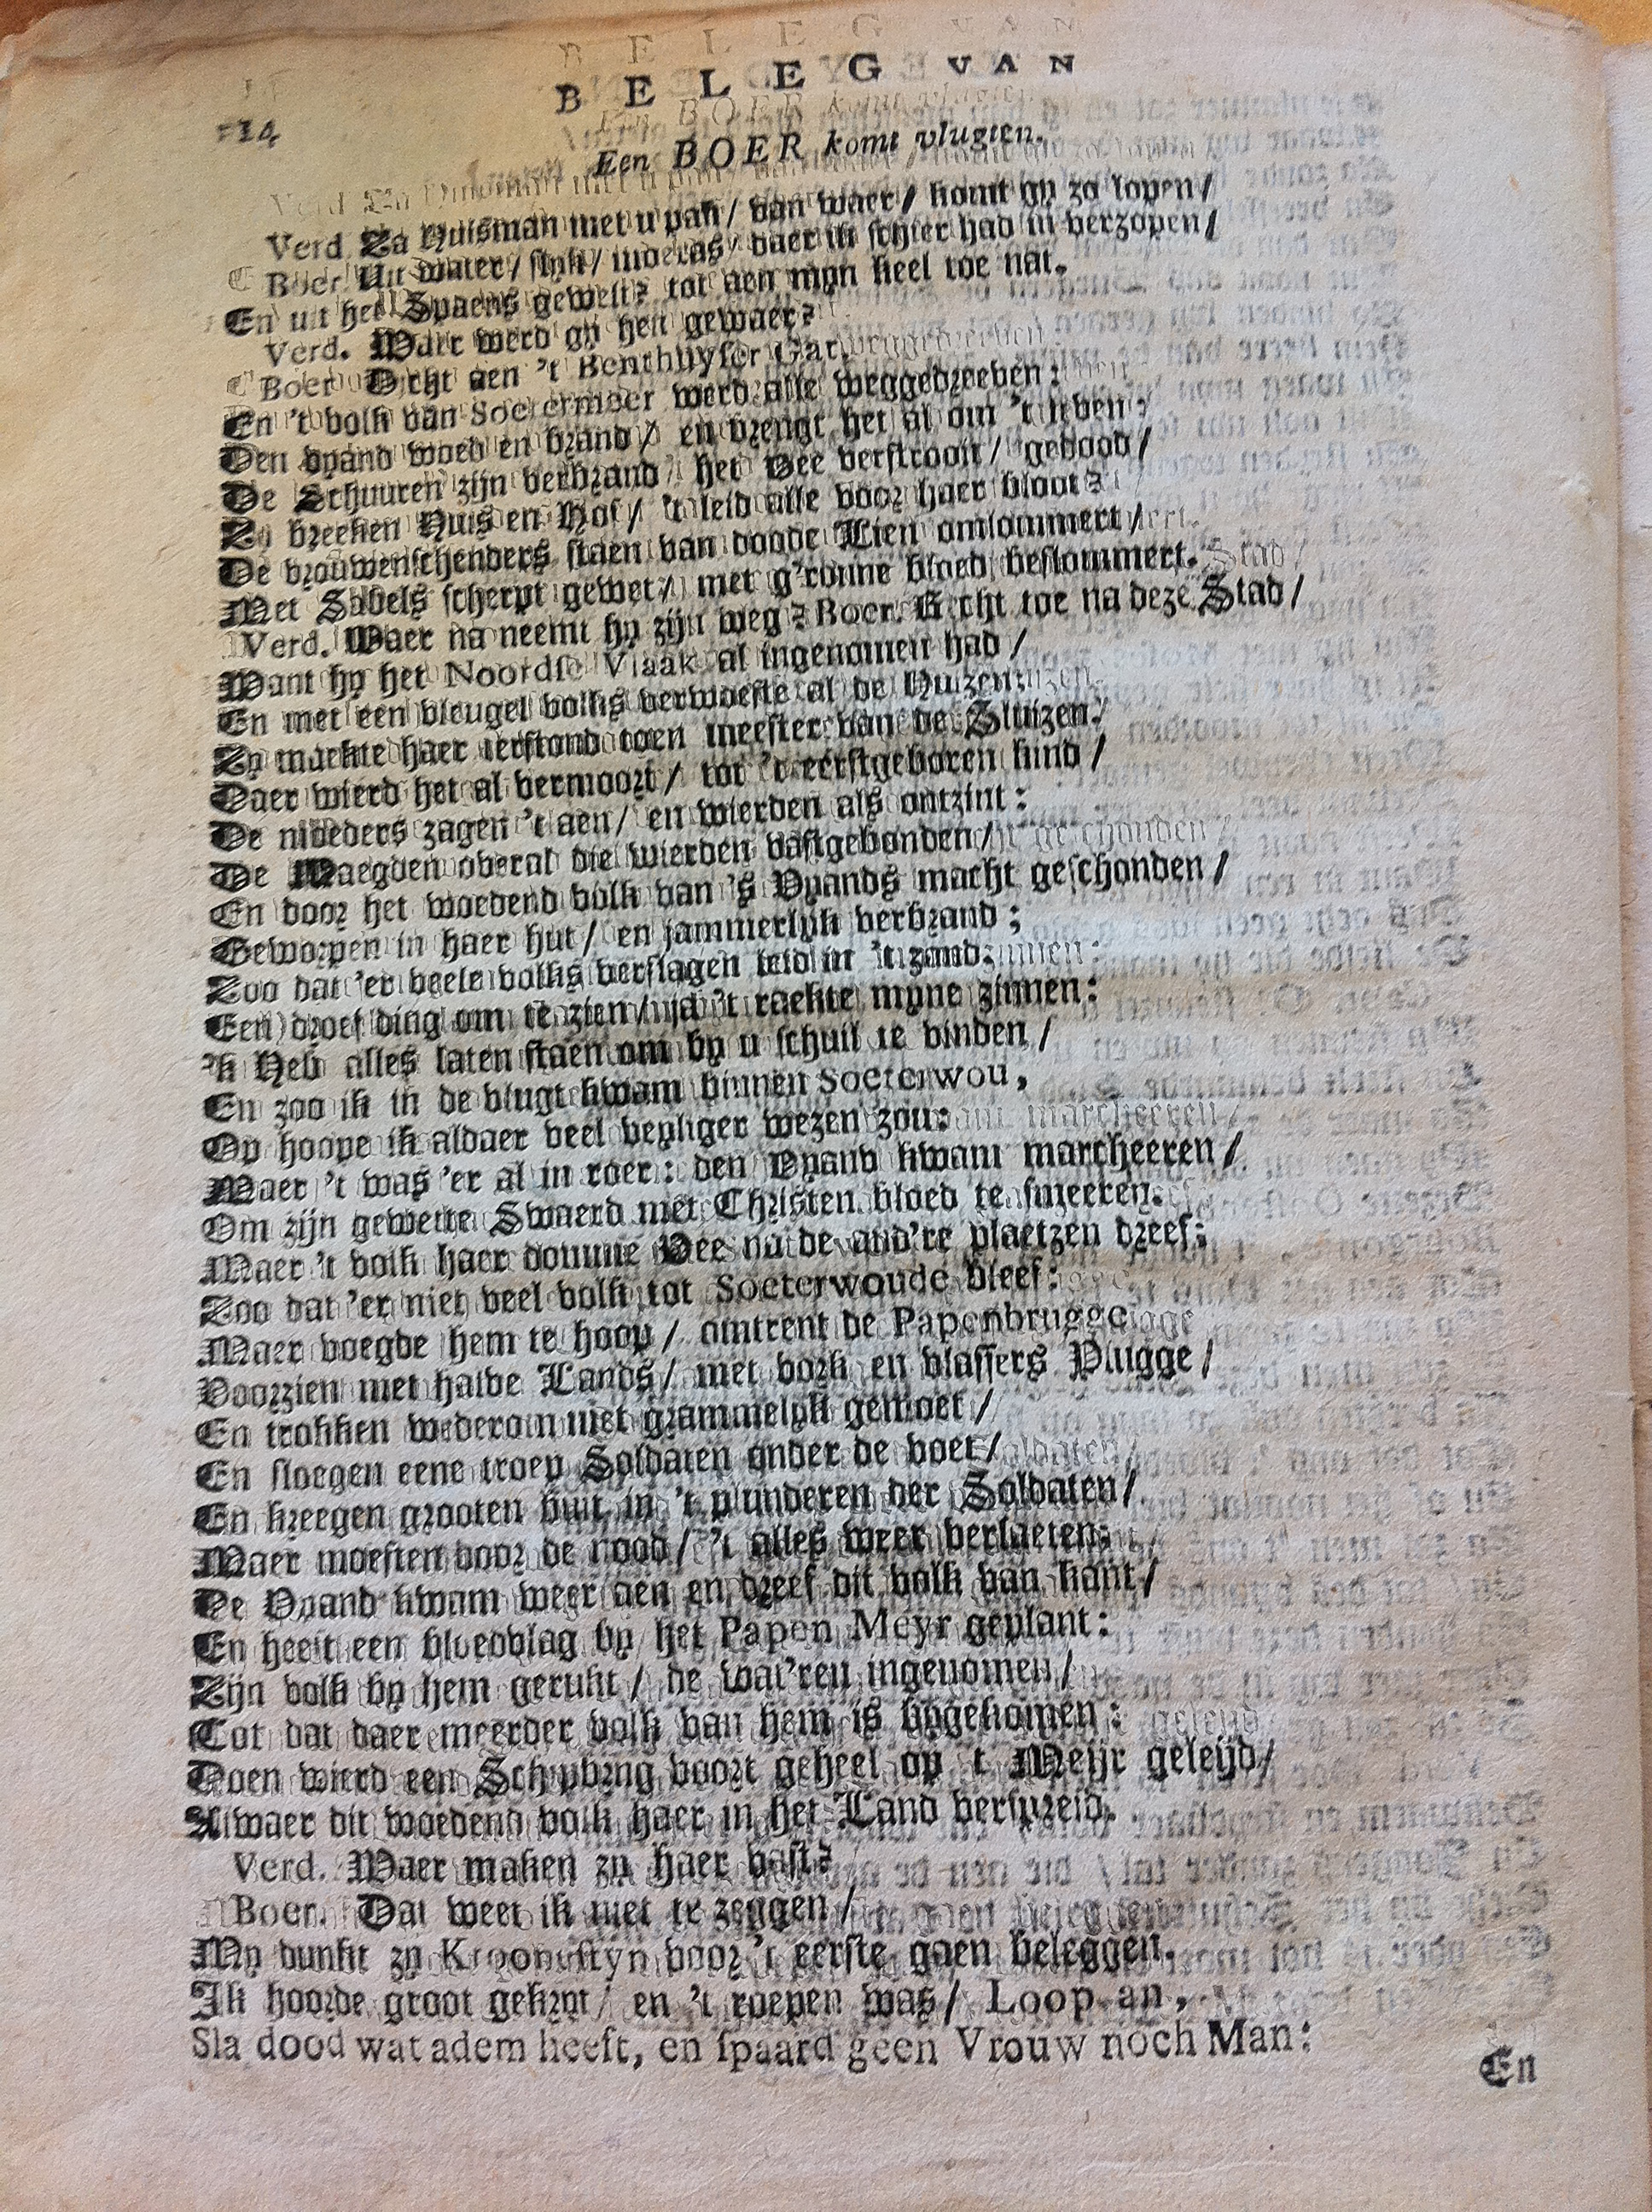 BELEG VAN
14
Een BOER komt vlugten.
Verd. Za Huisman met u pak / van waer / komt gy zo lopen /
Boer. Uit water / slyk / moeras / daer ik schier had in verzopen /
En uit het Spaens gewelt? tot aen myn keel toe nat.
Verd. Waer werd gy hen gewaer?
Boer. Dicht aen 't Benthuyser Gat.
En 't volk van Soetermeer werd alle weggedreeven:
Den vyand woed en brand / en brengt het al om 't leven:
De Schuuren zijn verbrand / het Vee verstrooit / gedood /
Zy breeken Huis en Hof / 't leid alle voor haer bloot?
De vrouwenschenders staen van doode Lien omlommert /
Met Sabels scherpt gewet / met g'ronne bloed beslommert.
Verd. Waer na neemt hy zijn weg? Boer. Recht toe na deze Stad /
Want hy het Noordse Vlaak al ingenomen had /
En met een vleugel volks verwoeste al de Huizen:
Zy maekte haer terstond toen meester van de Sluizen.
Daer wierd het al vermoort / tot 't eerstgeboren kind /
De moeders zagen 't aen / en wierden als ontzint:
De Maegden overal die wierden vastgebonden /
En door het woedend volk van 's Vyands macht geschonden /
Geworpen in haer hut / en jammerlyk verbrand;
Zoo dat 'er veele volks verslagen leid in 't zand:
Een droef ding om te zien / ja 't raekte myne zinnen:
'k Heb alles laten staen om by u schuil te vinden /
En zoo ik in de vlugt kwam binnen Soeterwou,
Op hoope ik aldaer veel veyliger wezen zou:
Maer 't was 'er al in roer: den Vyand kwam marcheeren /
Om zijn gewette Swaerd met Christen bloed te smeeren.
Maer 't volk haer domme Vee na de and're plaetzen dreef:
Zoo dat 'er niet veel volk tot Soeterwoude bleef:
Maer voegde hem te hoop / omtrent de Papenbrugge
Voorzien met halve Lands / met vork en vlassers Plugge /
En trokken wederom met grammelyk gemoet /
En sloegen eene troep Soldaten onder de voet /
En kreegen grooten buit in 't plunderen der Soldaten /
Maer moesten door de nood / 't alles weer verlaeten:
De Vyand kwam weer aen en dreef dit volk van kant /
En heeft een bloedvlag by het Papen Meyr geplant:
Zijn volk by hem gerukt / de wat'ren ingenomen /
Tot dat daer meerder volk van hem is bygekomen:
Doen wierd een Schipbrug voort geheel op 't Meijr geleijd /
Alwaer dit woedend volk haer in het Land verspreid.
Verd. Waer maken zy haer vast?
Boer. Dat weet ik niet te zeggen /
My dunkt zy Kroonustyn voor 't eerste gaen beleggen.
Ik hoorde groot gekryt / en 't roepen was / Loop an,
Sla dood wat adem heeft, en spaard geen Vrouw noch Man:
En